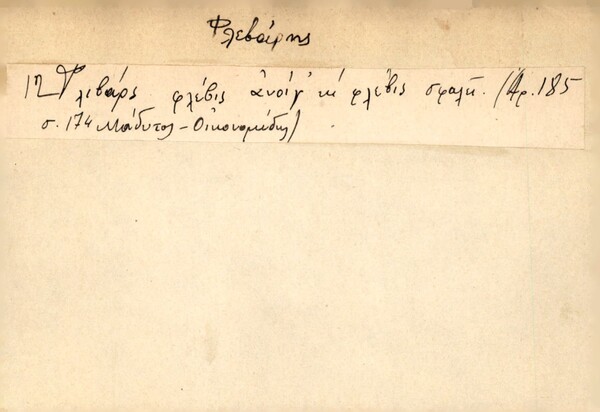 Φλεβάρης
12 Φλιβάρς φλέβις ἀνοίγ' κὶ φλέβις σφαλῆ. (Ἀρ. 185
σ. 174 Μάδυτος - Οἰκονομίδης)